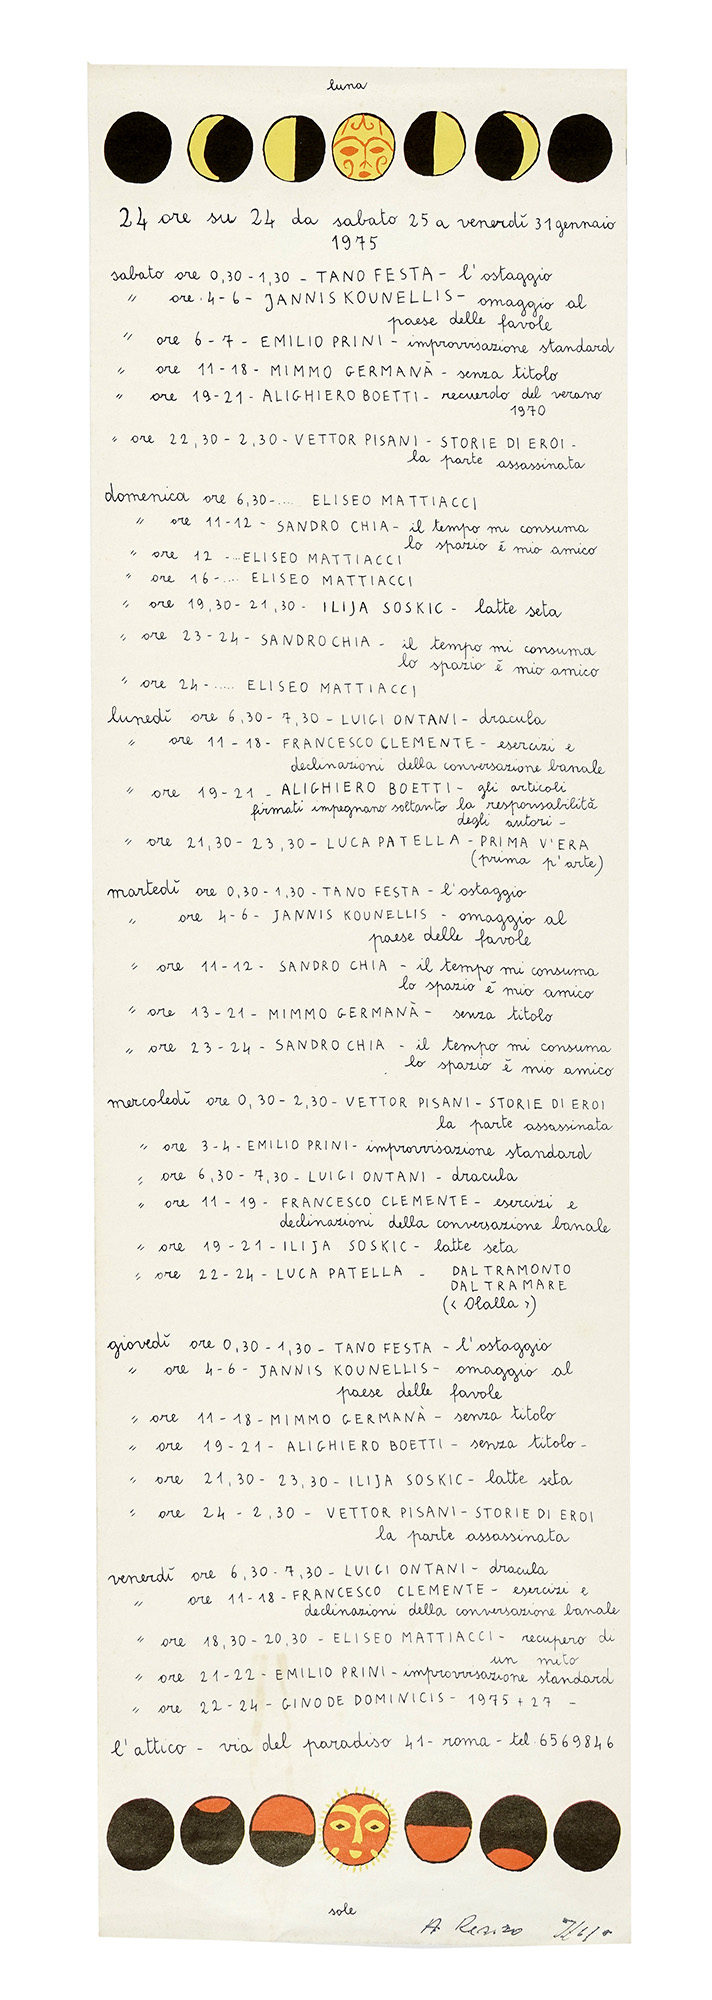 luna
24 ore su 24 da sabato 25 a venerdí 31 gennaio
1975
sabato ore 0,30-1,30 - TANO FESTA - l'ostaggio
" ore 4-6 - JANNIS KOUNELLIS - omaggio al
paese delle favole
" ore 6-7 - EMILIO PRINI - improvvisazione standard
" ore 11-18 - MIMMO GERMANÀ - senza titolo
" ore 19-21 - ALIGHIERO BOETTI - recuerdo del verano
1970
" ore 22,30-2,30 - VETTOR PISANI - STORIE DI EROI -
la parte assassinata
domenica ore 6,30-.... ELISEO MATTIACCI
" ore 11-12 - SANDRO CHIA - il tempo mi consuma
lo spazio é mio amico
" ore 12 -... ELISEO MATTIACCI
" ore 16-.... ELISEO MATTIACCI
" ore 19,30-21,30 - ILIJA SOSKIC - latte seta
" ore 23-24 - SANDRO CHIA - il tempo mi consuma
lo spazio é mio amico
" ore 24-..... ELISEO MATTIACCI
lunedí ore 6,30-7,30 - LUIGI ONTANI - dracula
" ore 11-18 - FRANCESCO CLEMENTE - esercizi e
declinazioni della conversazione banale
" ore 19-21 - ALIGHIERO BOETTI - gli articoli
firmati impegnano soltanto la responsabilitá
degli autori -
" ore 21,30-23,30 - LUCA PATELLA - PRIMA V'ERA
(prima p'arte)
martedí ore 0,30-1,30 - TANO FESTA - l'ostaggio
" ore 4-6 - JANNIS KOUNELLIS - omaggio al
paese delle favole
" ore 11-12 - SANDRO CHIA - il tempo mi consuma
lo spazio é mio amico
" ore 13-21 - MIMMO GERMANÀ - senza titolo
" ore 23-24 - SANDRO CHIA - il tempo mi consuma
lo spazio é mio amico
mercoledí ore 0,30-2,30 - VETTOR PISANI - STORIE DI EROI
la parte assassinata
" ore 3-4 - EMILIO PRINI - improvvisazione standard
" ore 6,30-7,30 - LUIGI ONTANI - dracula
" ore 11-19 - FRANCESCO CLEMENTE - esercizi e
declinazioni della conversazione banale
" ore 19-21 - ILIJA SOSKIC - latte seta
" ore 22-24 - LUCA PATELLA - DAL TRAMONTO
DAL TRA MARE
(‹ Olalla ›)
giovedí ore 0,30-1,30 - TANO FESTA - l'ostaggio
" ore 4-6 - JANNIS KOUNELLIS - omaggio al
paese delle favole
" ore 11-18 - MIMMO GERMANÀ - senza titolo
" ore 19-21 - ALIGHIERO BOETTI - senza titolo -
" ore 21,30-23,30 - ILIJA SOSKIC - latte seta
" ore 24-2,30 - VETTOR PISANI - STORIE DI EROI
la parte assassinata
venerdí ore 6,30-7,30 - LUIGI ONTANI - dracula
" ore 11-18 - FRANCESCO CLEMENTE - esercizi e
declinazioni della conversazione banale
" ore 18,30-20,30 - ELISEO MATTIACCI - recupero di
un mito
" ore 21-22 - EMILIO PRINI - improvvisazione standard
" ore 22-24 - GINO DE DOMINICIS - 1975 + 27 -
l'attico - via del paradiso 41 - roma - tel. 6569846
sole
A